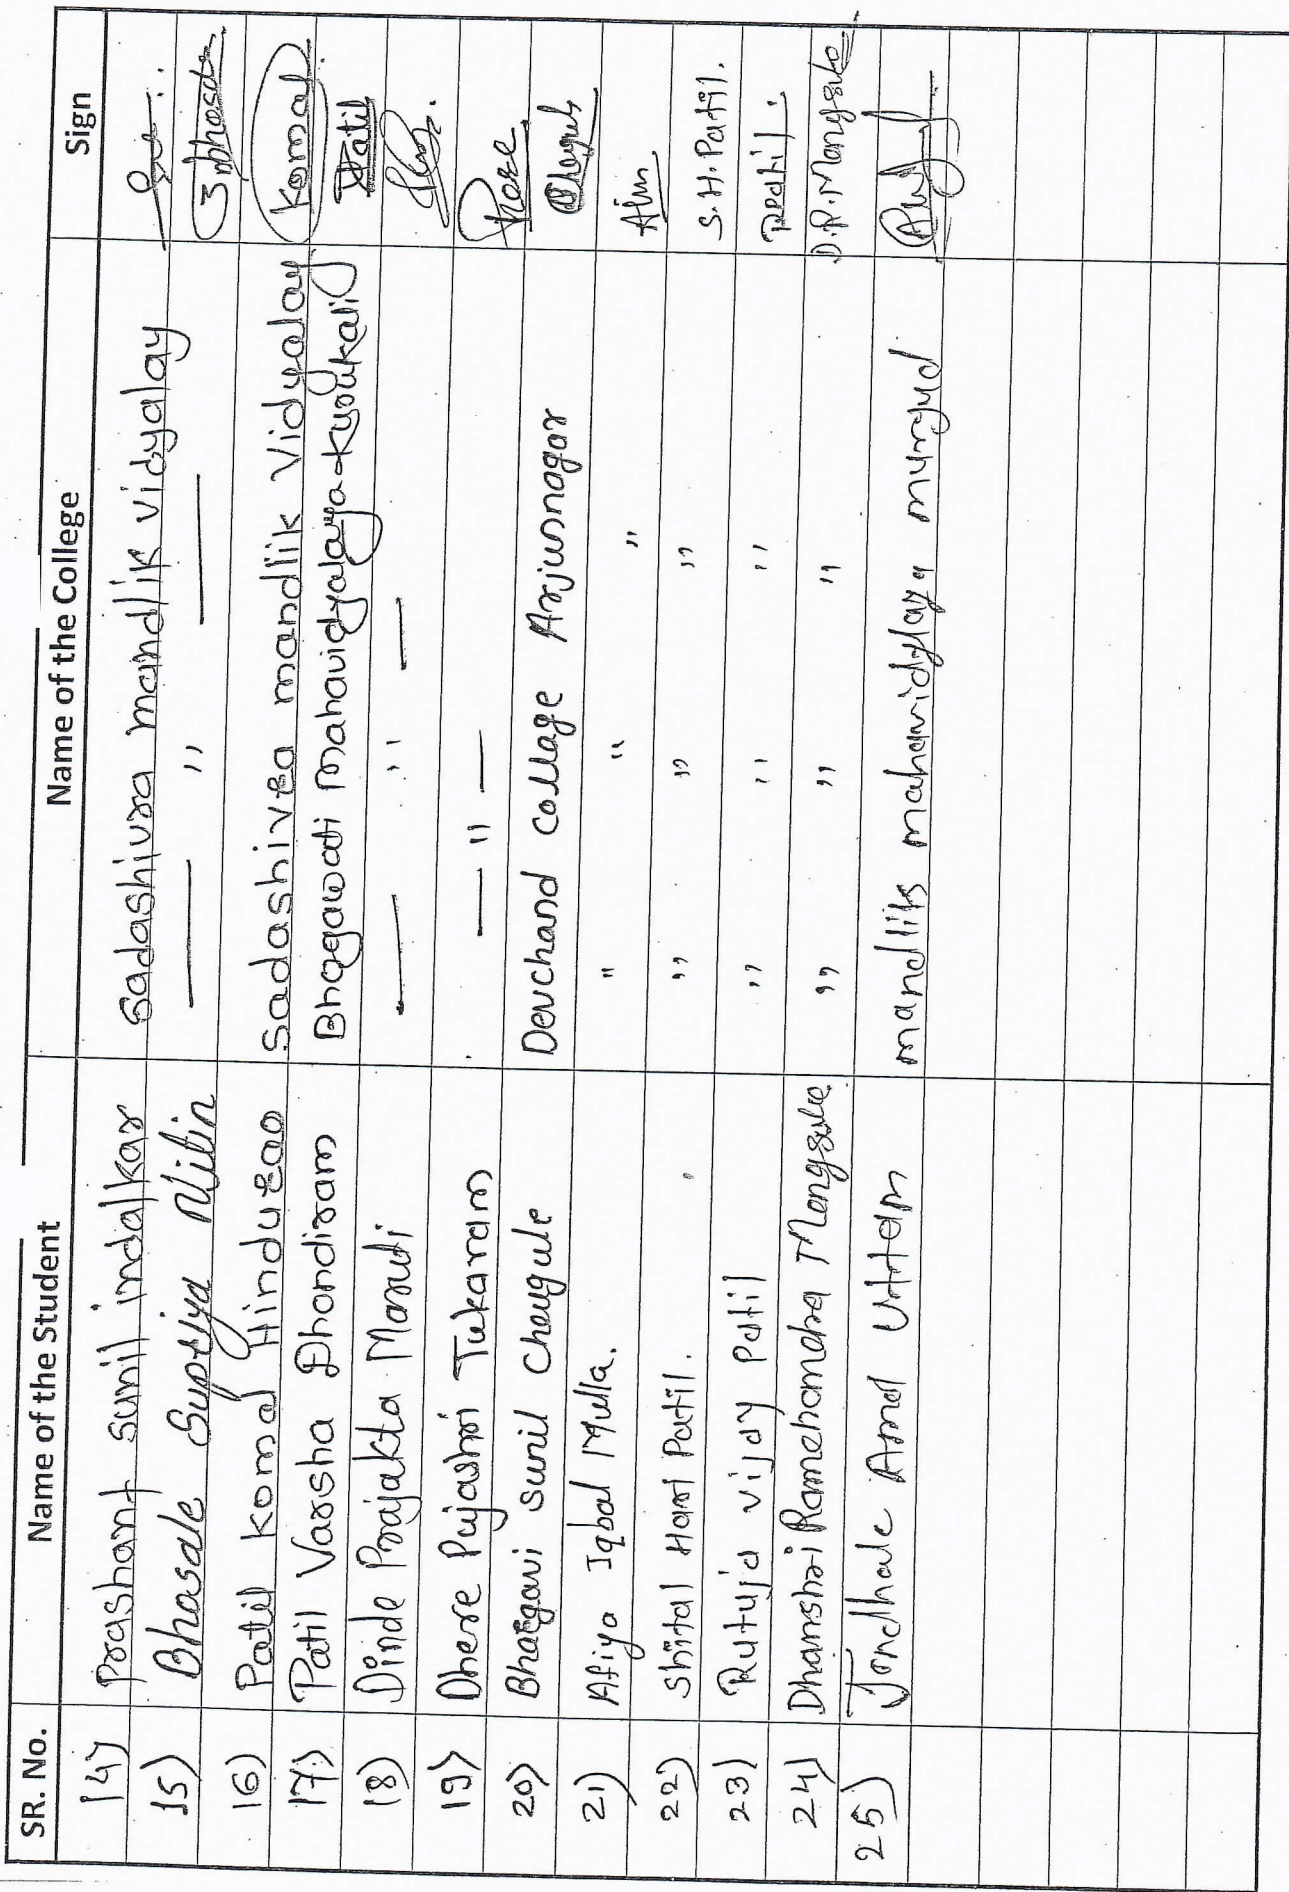 SR. No. Name of the Student Name of the College Sign
14) Prashant sunil indalkar sadashivra mandlik vidyalay
15) Bhosale Supriya Nitin — ,, —
16) Patil komal Hindurao sadashivra mandlik Vidyalay Komal.
17) Patil Varsha Dhondiram Bhogawati Mahavidyalaya Kurukali Patil
18) Dinde Prajakta Maruti — ,, —
19) Dhere Pujashri Tukaram — ,, —
20) Bhargavi sunil Chougule Devchand collage Arjunnagar
21) Afiya Iqbal Mulla. " " "
22) Shital Hari Patil. ,, ,, ,, S.H.Patil.
23) Rutuja vijay Patil ,, ,, ,,
24) Dhanshri Ramchandra Mangsule ,, ,, ,, D.R.Mangsule
25) Jondhale Amol Uttam mandlik mahavidylaya murgud